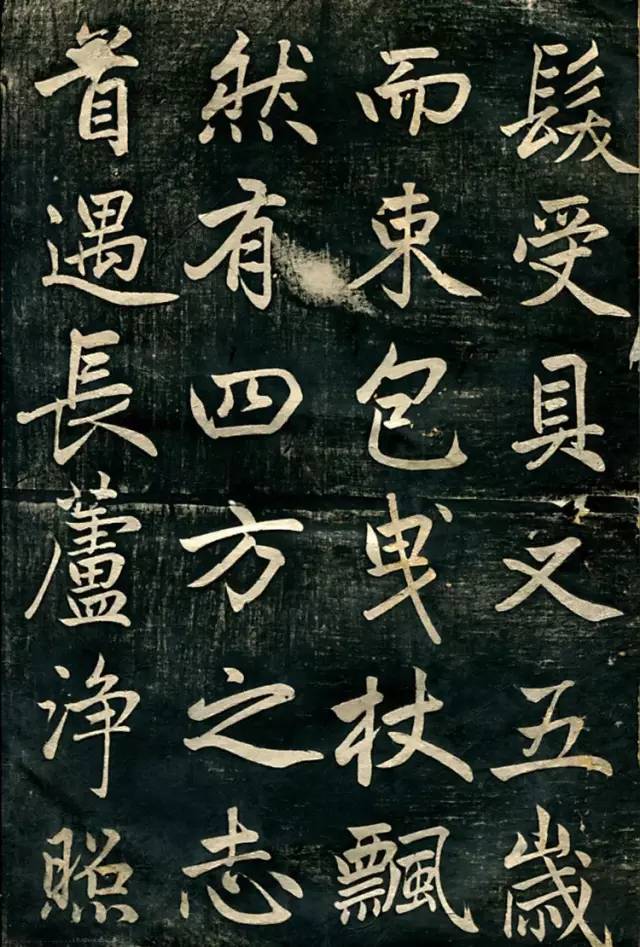 髮受具又五歲
而東包曳杖飄
然有四方之志
首遇長蘆淨照